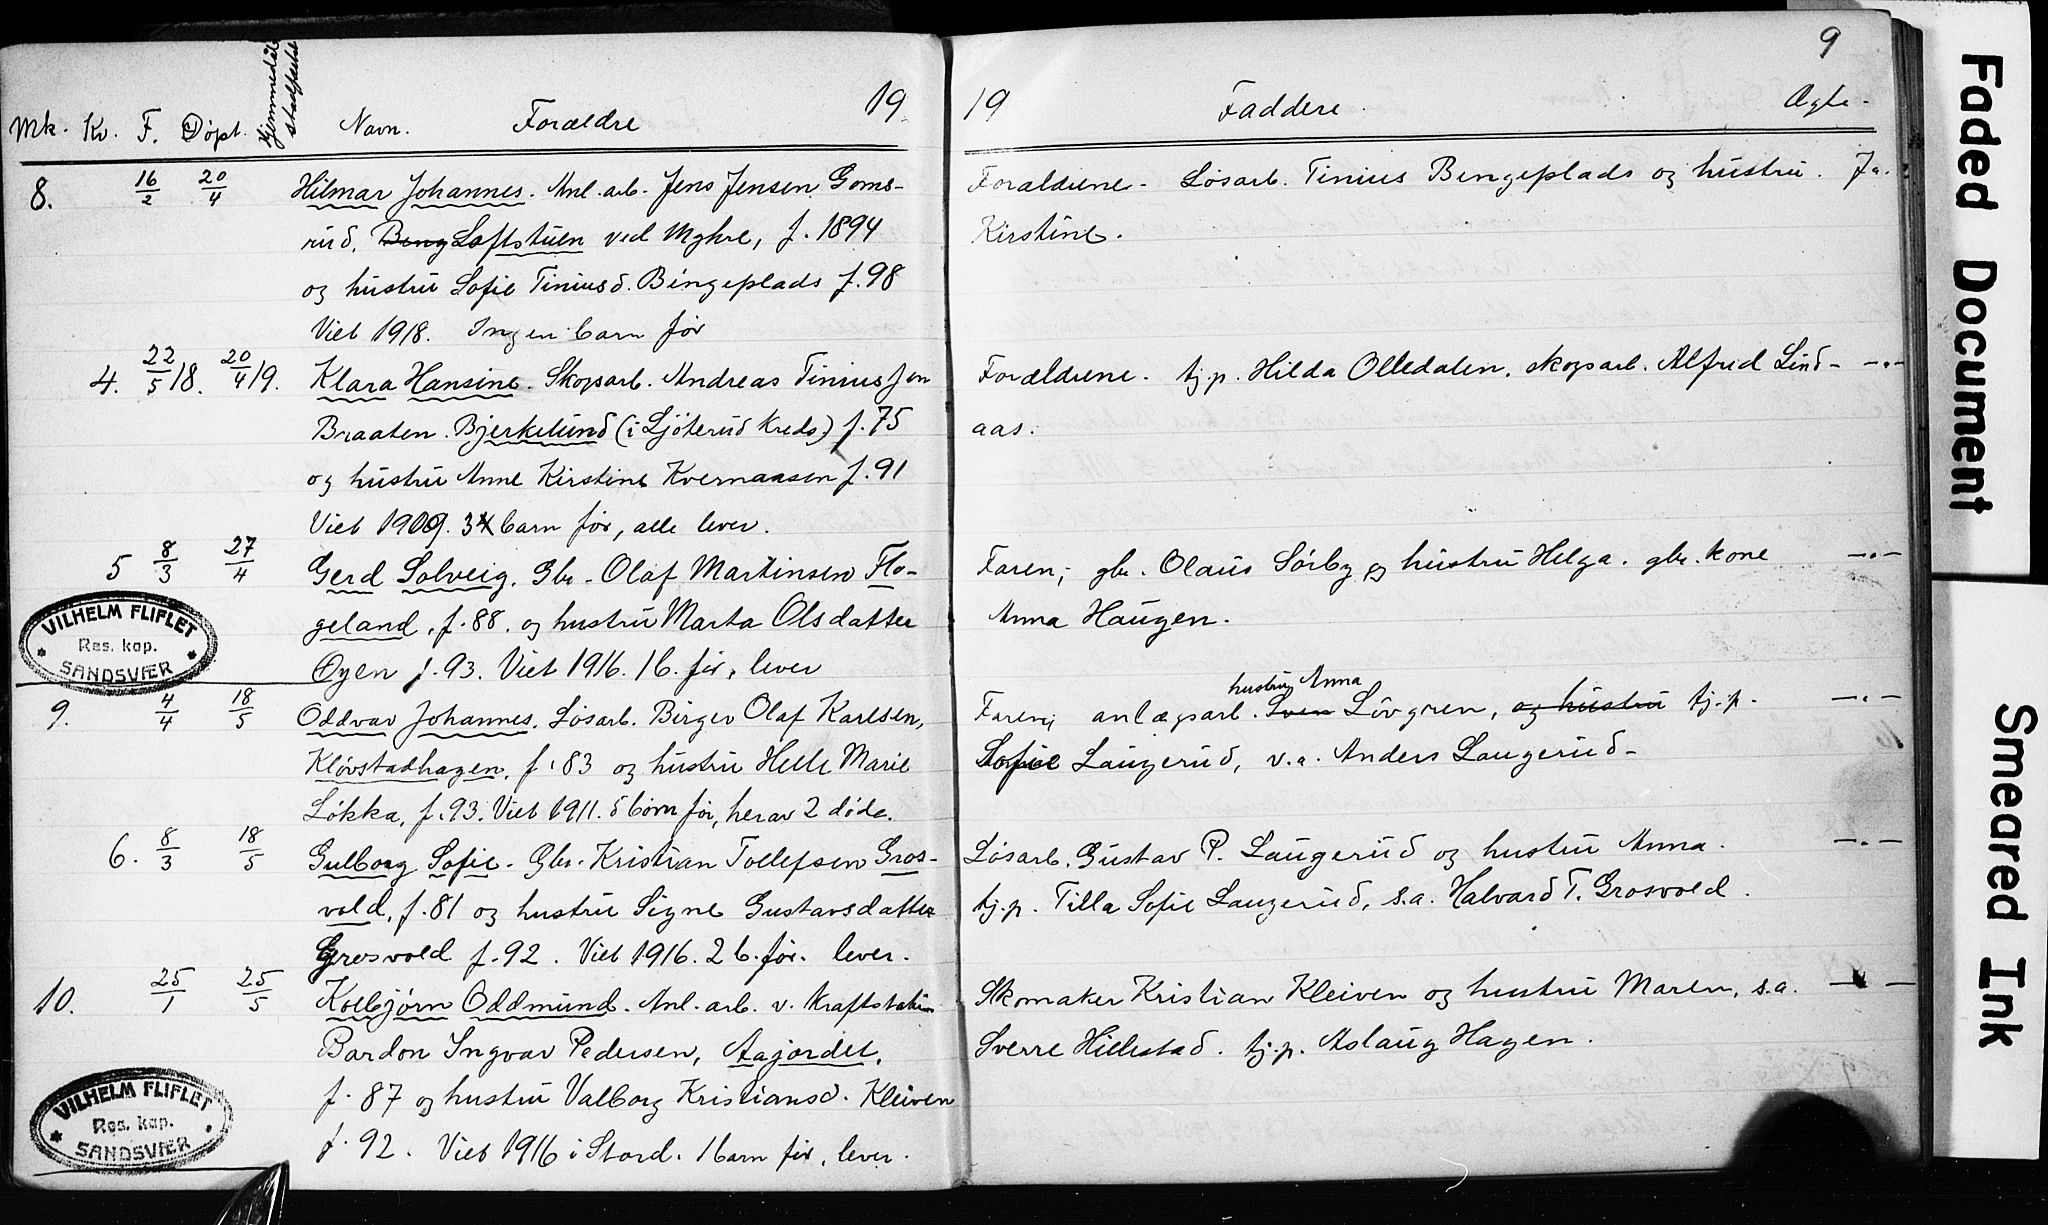 19.
Mk. Kv. F. Döpt. Hjemmedåb stadfestet Navn. Forældre
8. 16/2 20/4 Hilmar Johannes. Anl. arb. Jens Jensen Goms-
rud, Beng Loftstuen ved Myhre, f. 1894
og hustru Sofie Tiniusd. Bingeplads f. 98
Viet 1918. Ingen barn før
4. 22/5 18. 20/4 19. Klara Hansine. Skogsarb. Andreas Tiniusen
Braaten. Bjerkelund (i Ljöterud Kreds.) f. 75
og hustru Anne Kirstine Kvernaasen f. 91
Viet 1909. 3 barn før, alle lever.
5 8/3 27/4 Gerd Solveig. Gbr. Olaf Martinsen Flo-
geland, f. 88. og hustru Marta Olsdatter
Øyen f. 93. Viet 1916. 1 b. før, lever
VILHELM FLIFLET
Res. kap.
* SANDSVÆR *
9. 4/4 18/5 Oddvar Johannes. Løsarb. Birger Olaf Karlsen,
Kløvstadhagen, f. 83 og hustru Helle Marie
Løkka, f. 93. Viet 1911. 5 børn før, herav 2 døde.
6. 8/3 18/5 Gulborg Sofie. Gbr. Kristian Tollefsen Gros-
vold, f. 81 og hustru Signe Gustavsdatter
Grosvold f. 92. Viet 1916. 2 b. før. lever.
10. 25/1 25/5 Kolbjørn Oddmund. Anl. arb. v. Kraftstation
Bardon Ingvar Pedersen, Aajordet,
f. 87 og hustru Valborg Kristiansd. Kleiven
f. 92. Viet 1916 i Stord. 1 barn før, lever.
VILHELM FLIFLET
Res. kap.
* SANDSVÆR *
9
19 Faddere. Ægte.
Forældrene. Løsarb. Tinius Bingeplads og hustru. Ja.
Kirstine.
Forældrene. tj.p. Hilda Olledalen, skogsarb. Alfred Lind- —"—
aas.
Faren; gbr. Olaus Sörby og hustru Helga. gbr. kone —"—
Anna Haugen.
hustru Anna
Faren; anlægsarb. Sven Lövgren, og hustru tj.p. —"—
Sofie Laugerud, v.a. Anders Laugerud.
Løsarb. Gustav P. Laugerud og hustru Anna. —"—
tj.p. Tilla Sofie Laugerud, s.a. Halvard T. Grosvold.
Skomaker Kristian Kleiven og hustru Maren, s.a. —"—
Sverre Hillestad. tj.p. Aslaug Hagen.
Faded Document
Smeared Ink